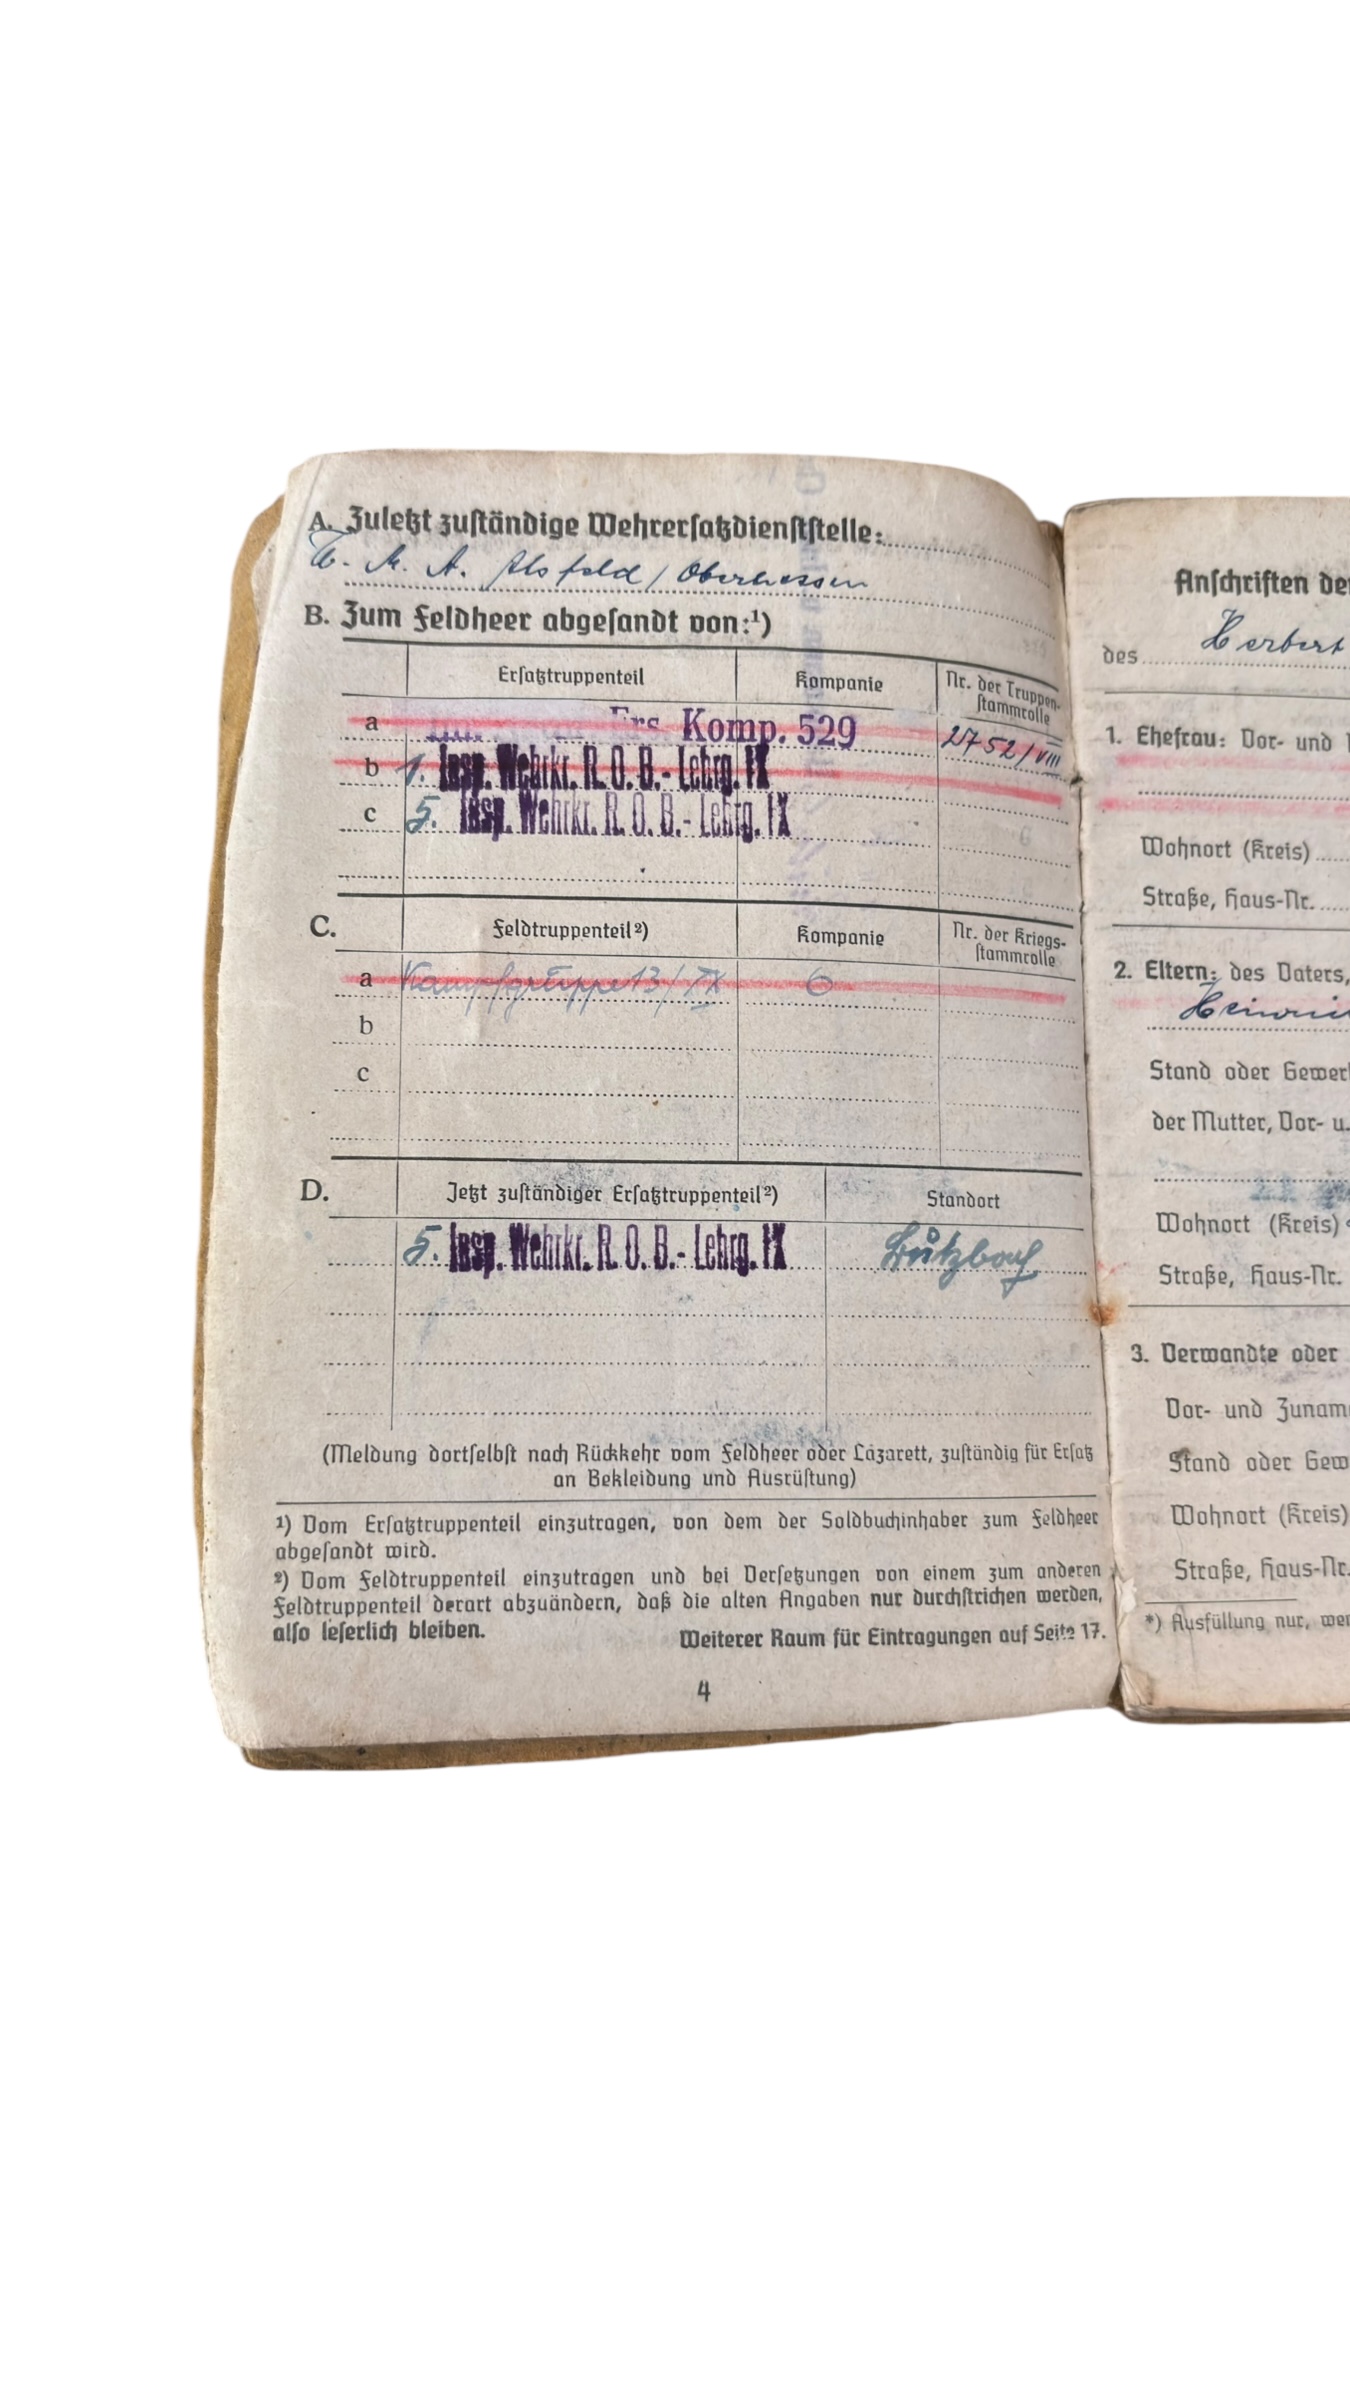 A. Zuletzt zuständige Wehrersatzdienststelle:
W. M. A. Alsfeld / Oberhessen
B. Zum Feldheer abgesandt von:¹)
Ersatztruppenteil Kompanie Nr. der Truppen-
stammrolle
a Ers. Komp. 529 2752/VIII
b 1. Insp. Wehrkr. R. O. B.- Lehrg. IX
c 5. Insp. Wehrkr. R. O. B.- Lehrg. IX
C. Feldtruppenteil²) Kompanie Nr. der Kriegs-
stammrolle
a Kampfgruppe 13/IX 6
b
c
D. Jetzt zuständiger Ersatztruppenteil²) Standort
5. Insp. Wehrkr. R. O. B.- Lehrg. IX Butzbach
(Meldung dortselbst nach Rückkehr vom Feldheer oder Lazarett, zuständig für Ersatz
an Bekleidung und Ausrüstung)
¹) Vom Ersatztruppenteil einzutragen, von dem der Soldbuchinhaber zum Feldheer
abgesandt wird.
²) Vom Feldtruppenteil einzutragen und bei Versetzungen von einem zum anderen
Feldtruppenteil derart abzuändern, daß die alten Angaben nur durchstrichen werden,
also leserlich bleiben.
Weiterer Raum für Eintragungen auf Seite 17.
4
Anschriften der
des Herbert
1. Ehefrau: Vor- und
Wohnort (Kreis)
Straße, Haus-Nr.
2. Eltern: des Vaters,
Stand oder
der Mutter, Vor- u.
Wohnort (Kreis)
Straße, Haus-Nr.
3. Verwandte oder
Vor- und
Stand oder
Wohnort (Kreis)
Straße, Haus-Nr.
*) Ausfüllung nur,